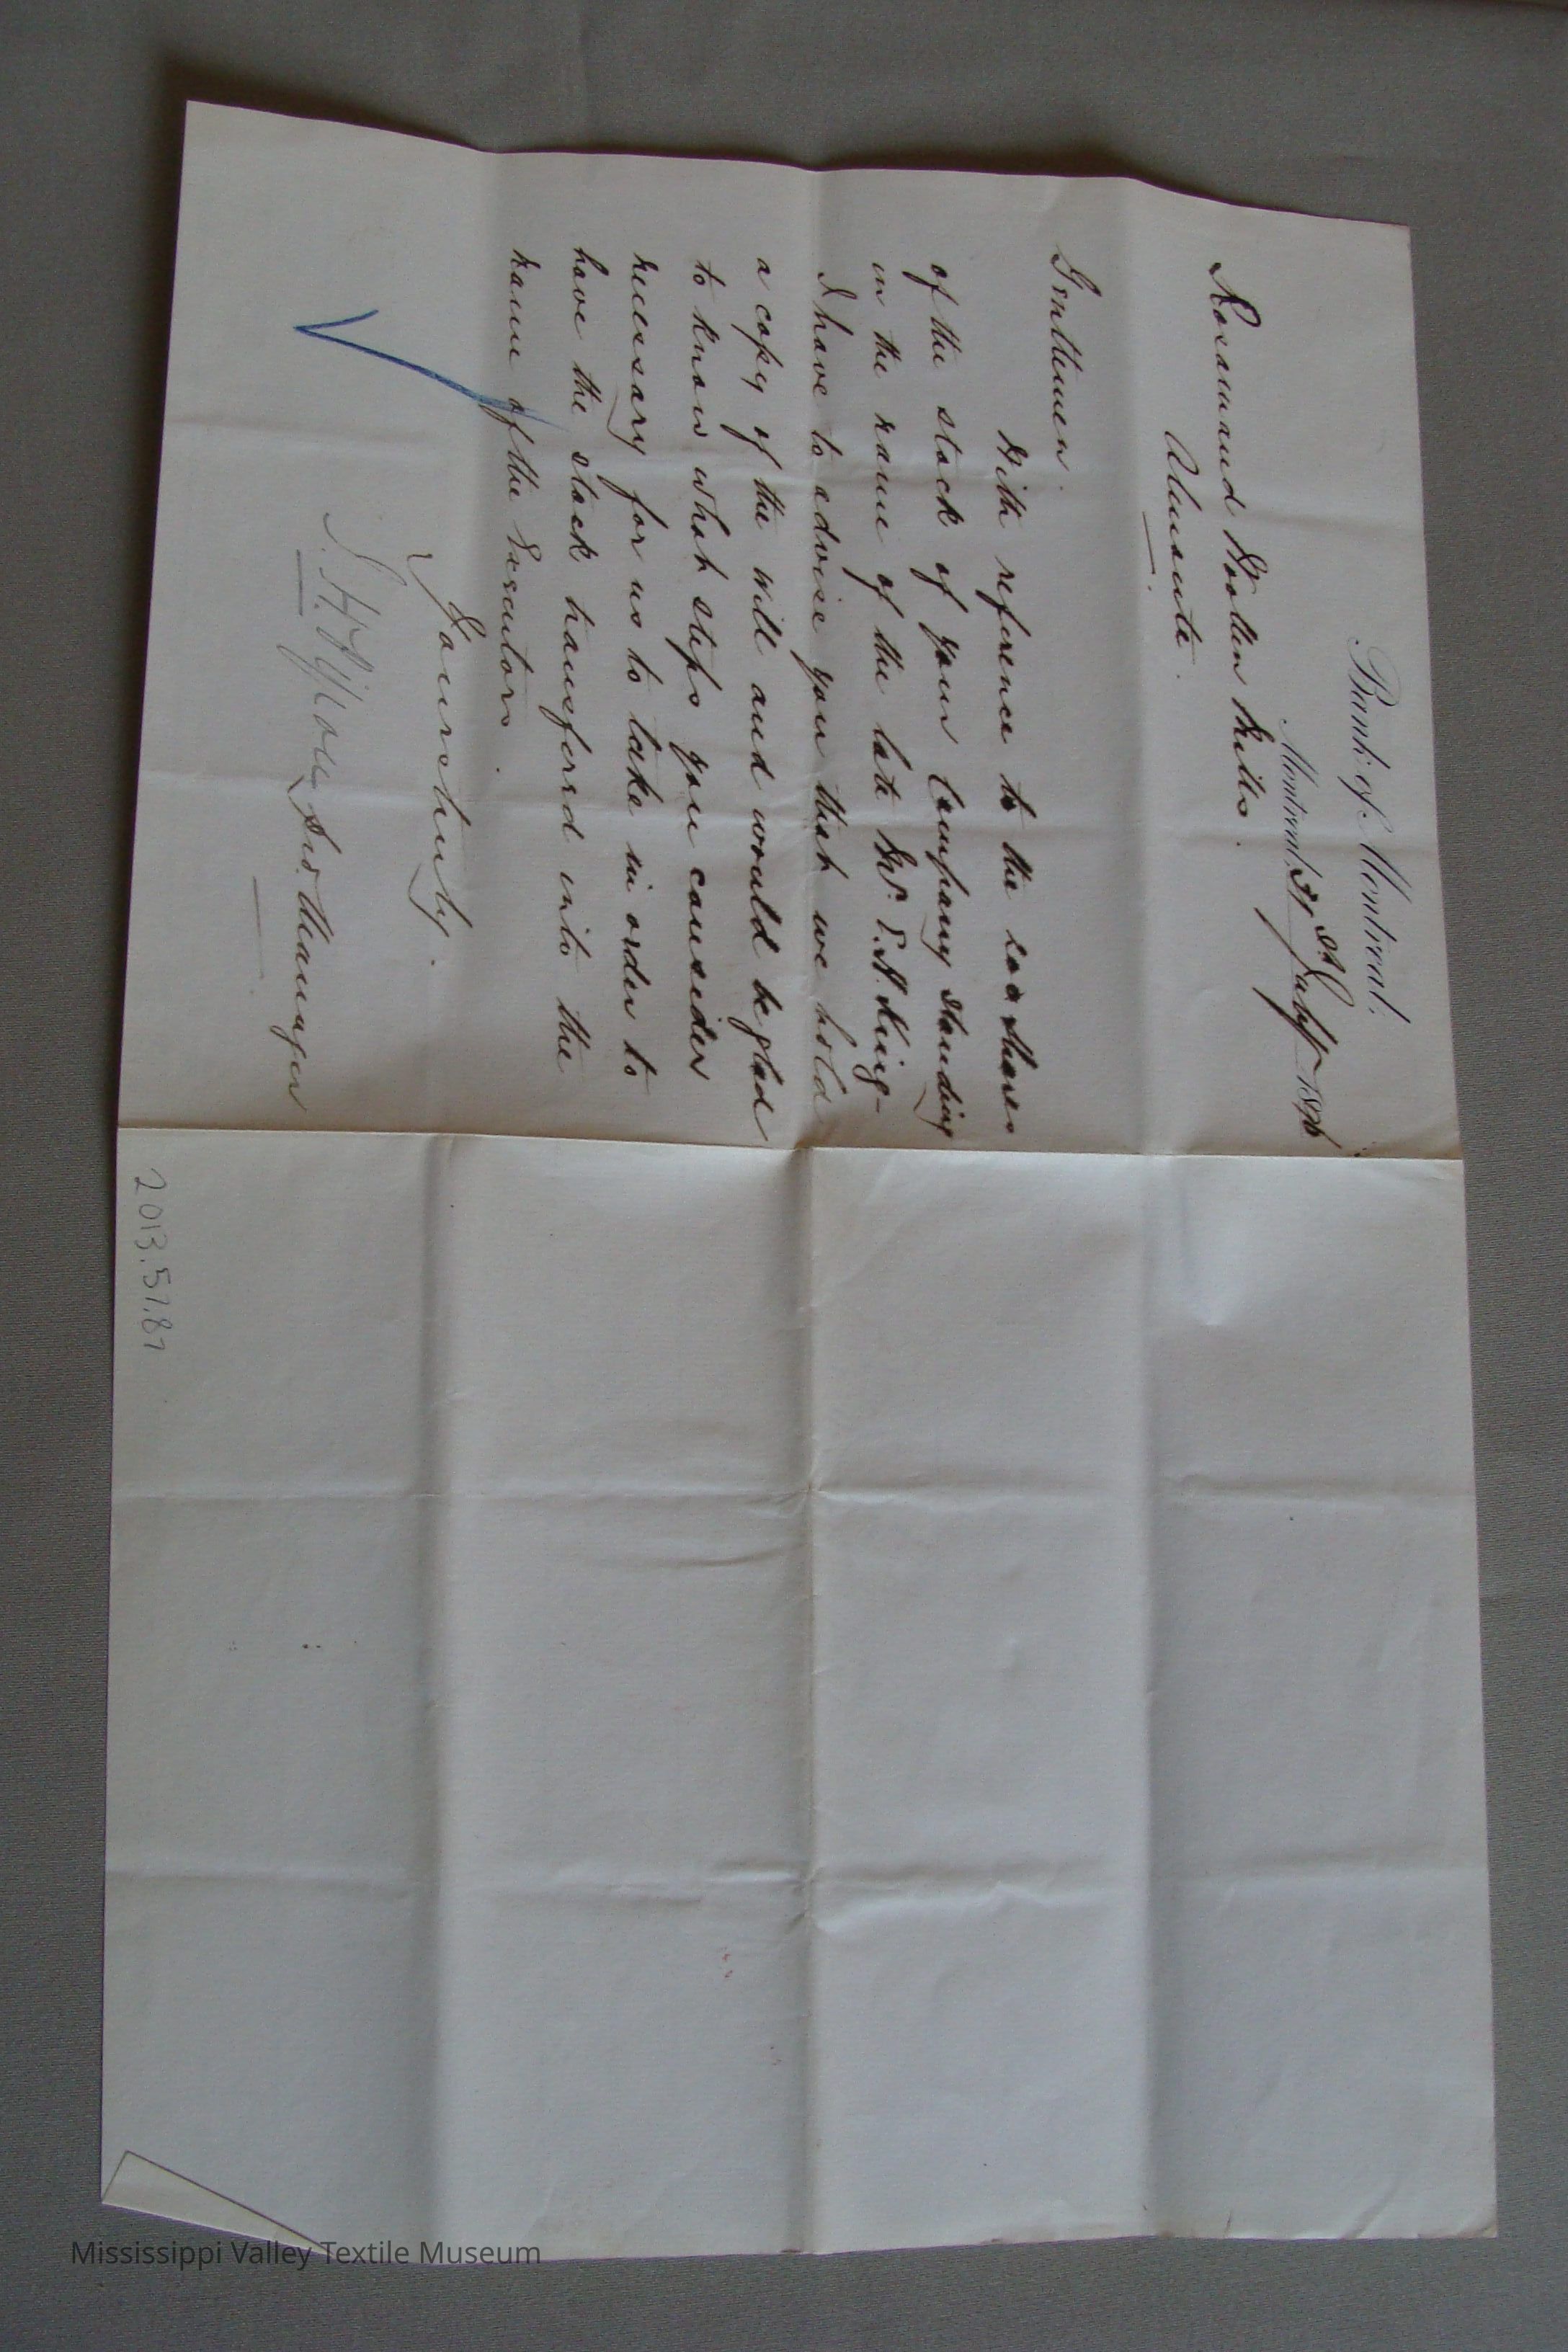 Bank of Montreal,
Montreal, 31st July 1896
Rosamund Woollen Mills.
Almonte.
Gentlemen.
With reference to the 200 shares
of the stock of your Company standing
in the name of the late Mr. E. H. King-
I have to advise you that we hold
a copy of the will and would be glad
to know what steps you consider
necessary for us to take in order to
have the stock transferred into the
name of the Executors.
Yours truly.
Manager
2013.57.87
Mississippi Valley Textile Museum